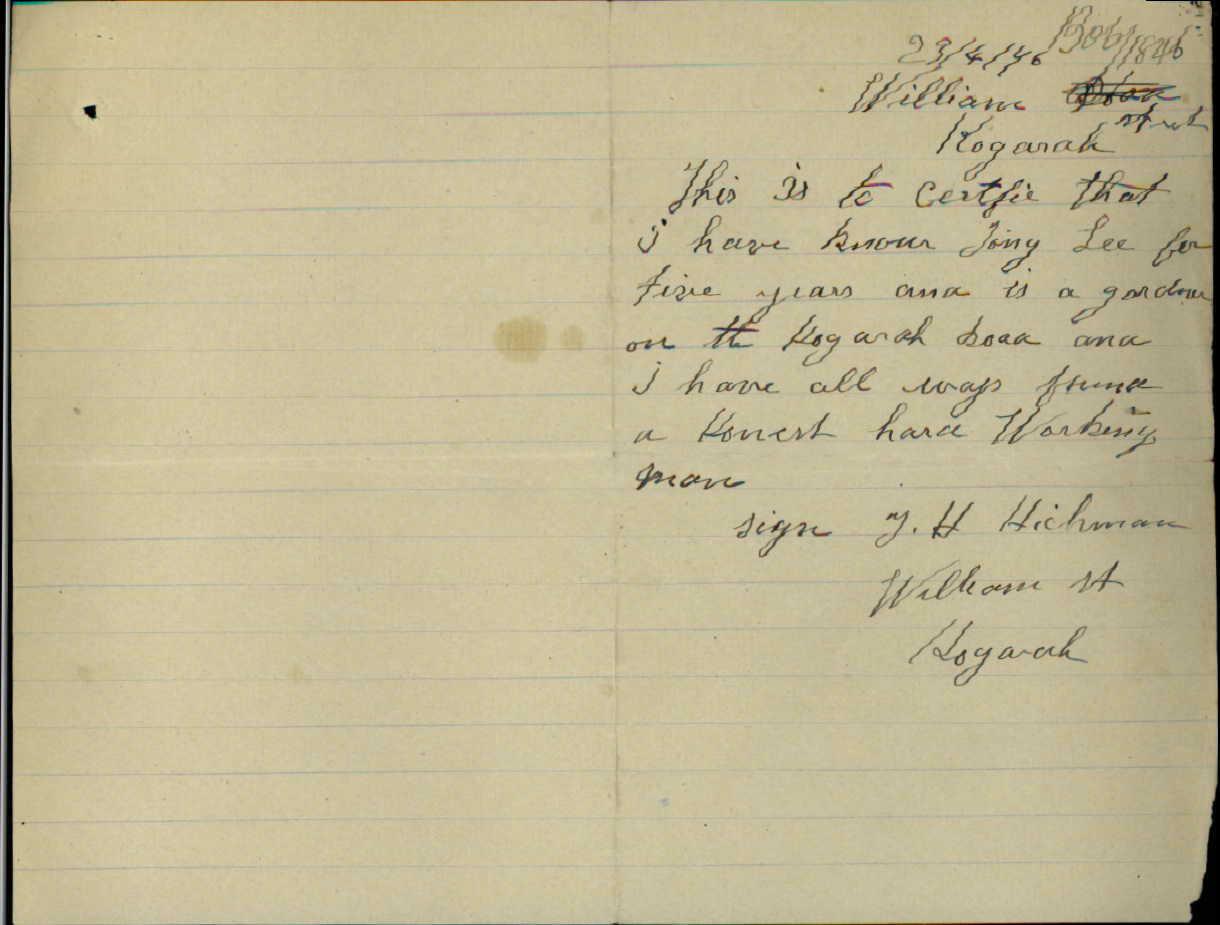 23/4/46
William street
Kogarah
This is to certfie that
i have knowr Jong Lee for
five years and is a gardner
on the Kogarah Road and
i have all ways found
a Honest hard Working
man
sign J. H Hickman
William st
Kogarah